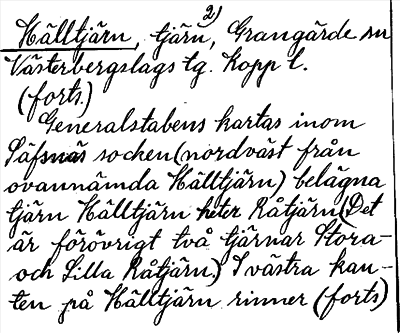 2)
Hälltjärn, tjärn, Grangärde sn
Västerbergslags tg. Kopp l.
(forts.)
Generalstabens kartas inom
Säfsnäs socken (nordväst från
ovannämda Hälltjärn) belägna
tjärn Hälltjärn heter Råtjärn (Det
är förövrigt två tjärnar Stora-
och Lilla Råtjärn.) I västra kan-
ten på Hälltjärn rinner (forts)